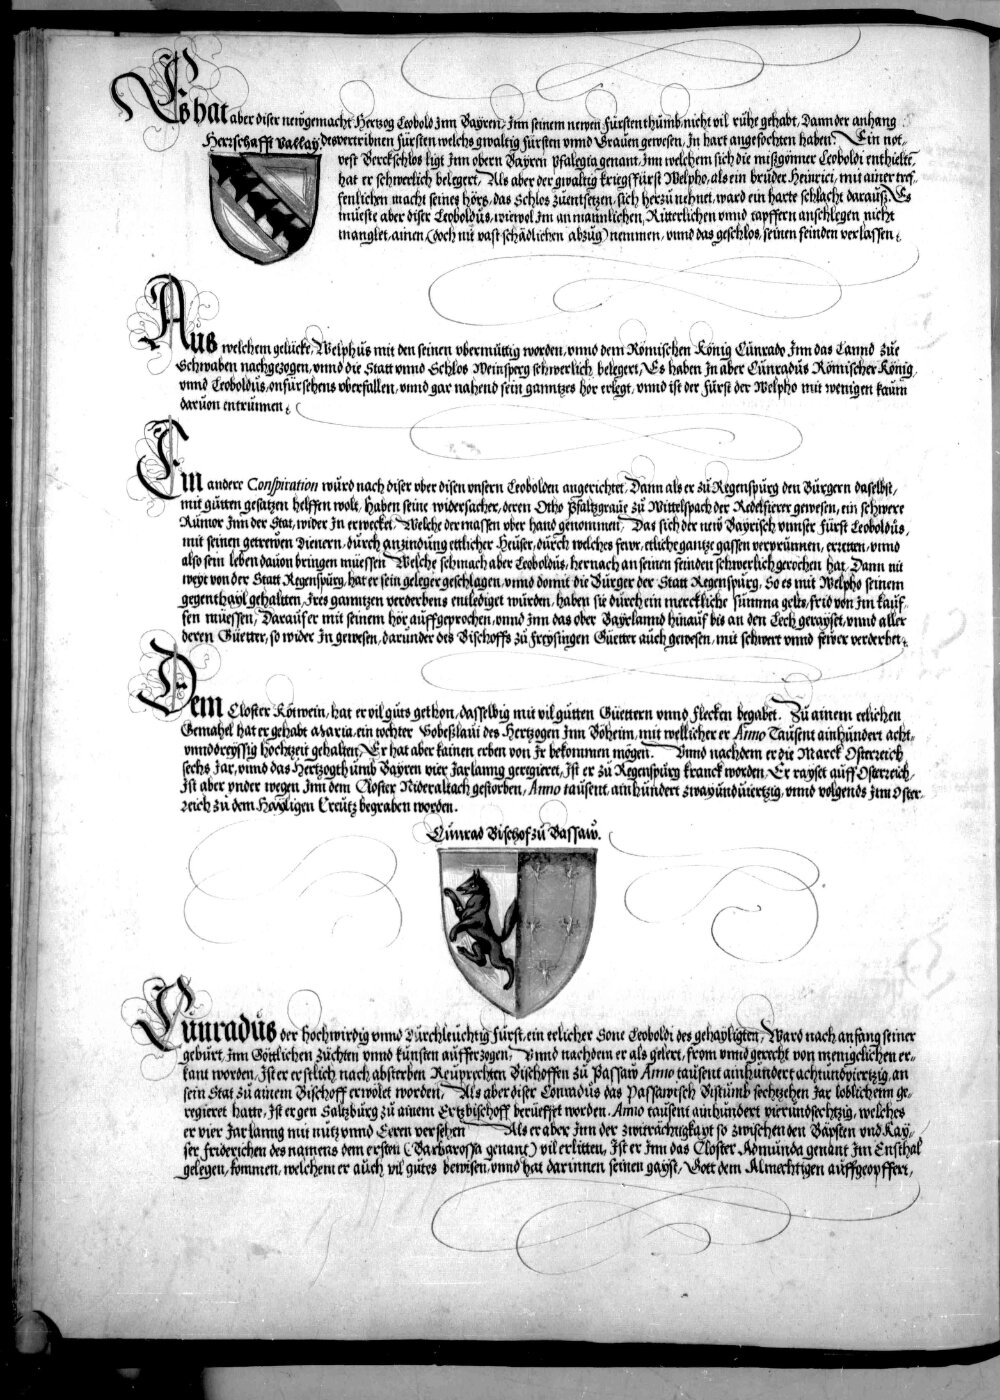 Es hat aber diser newgemacht Hertzog Leobold Jnn Bayren, Jnn seinem newen Fürstenthümb, nicht vil rühe gehabt, Dann der anhang
Herrschafft Vallay. des vertribnen Fürsten welchs gwaltig Fürsten vnnd Grauen gewesen, Jn hart angefochten haben. Ein not-
vest Berckschlos ligt Jnn obern Bayren Pfalegia genant, Jnn welchem sich die mißgönner Leoboldi enthielte,
hat er schwerlich belegert, Als aber der gwaltig kriegsfürst Welpho, als ein brüder Heinrici, mit ainer tref-
fenlichen macht seines hörs, das Schlos züentsetzen, sich herzü nehnet, ward ein harte schlacht darauß. Es
müeste aber diser Leoboldüs, wiewol Jm an mannlichen, Ritterlichen vnnd tapffern anschlegen nicht
manglet, ainen (doch mit vast schädlichen abzüg) nemmen, vnnd das geschlos, seinen feinden verlassen.
Aus welchem gelücke, Welphüs mit den seinen vbermüttig worden, vnnd dem Römischen König Cünrado Jnn das Lannd zue
Schwaben nachgezogen, vnnd die Statt vnnd Schlos Weinsperg schwerlich belegert, Es haben Jn aber Cünradüs Römischer König,
vnnd Leoboldüs, onfürsehens vberfallen, vnnd gar nahend sein ganntzes hör erlegt, vnnd ist der Fürst der Welpho mit wenigen kaum
daruon entrunnen.
Ein andere Conspiration würd nach diser vber disen vnsern Leobolden angerichtet, Dann als er zü Regenspürg den Bürgern daselbst,
mit gütten gesatzen helffen wolt, Haben seine widersacher, deren Otho Pfaltzgraüe zü Wittelspach der Redelfierer gewesen, ein schwere
Rümor Jnn der Stat, wider Jn erwecket, Welche der massen vber hand genommen, Das sich der new Bayrisch vnnser Fürst Leoboldüs,
mit seinen getrewen Dienern, dürch anzindung ettlicher Heüser, dürch welches fewr, etliche gantze gassen verprünnen, erretten, vnnd
also sein leben dauon bringen müessen Welche schmach aber Leoboldüs, hernach an seinen feinden schwerlich gerochen hat, Dann nit
weyt von der Statt Regenspürg, hat er sein geleger geschlagen, vnnd domit die Bürger der Statt Regenspürg, So es mit Welpho seinem
gegenthayl gehaltten, Jres ganntzen verderbens entlediget würden, haben sie dürch ein merckliche sümma gelts, frid von Jm kauf-
fen müessen, Darauf er mit seinem hör auffgeprochen, vnnd Jnn das ober Bayrlannd hinauf bis an den Lech gerayset, vnnd aller
deren Güetter, so wider Jn gewesen, daründer des Bischoffs zü Freysingen Güetter auch gewesen, mit schwert vnnd fewer verderbet.
Dem Closter Kötwein, hat er vil güts gethon, dasselbig mit vil gütten Güettern vnnd Flecken begabet. Zu ainem eelichen
Gemahel hat er gehabt Maria, ein tochter Sobeßlaui des Hertzogen Jnn Boheim, mit wellicher er Anno Tausent ainhundert acht-
vnnddreyssig hochtzeit gehalten, Er hat aber kainen erben von Jr bekommen mögen. Vnnd nachdem er die Marck Osterreich
sechs Jar, vnnd das Hertzogthümb Bayren vier Jarlanng geregieret, Jst er zü Regenspürg kranck worden, Er rayset auff Osterreich,
Jst aber vnder wegen Jnn dem Closter Nideraltach gestorben, Anno tausent, ainhundert zwayundviertzig, vnnd volgends Jnn Oster-
reich zü dem Hayligen Creütz begraben worden.
Cünrad Bischof zü Passaw.
Cünradüs der Hochwirdig vnnd Dürchleüchtig Fürst, ein eelicher Sone Leoboldi des gehayligten, Ward nach anfang seiner
gebürt, Jnn Göttlichen züchten vnnd künsten aufferzogen, Vnnd nachdem er als gelert, from vnnd gerecht von menigclichen er-
kant worden, Jst er erstlich nach absterben Reüprechten Bischoffen zü Passaw Anno tausent ainhundert achtundviertzig, an
sein Stat zü ainem Bischoff erwölet worden, Als aber diser Conradüs das Passawisch Bistumb sechtzehen Jar loblichenn ge-
regieret hatte, Jst er gen Saltzbürg zü ainem Ertzbischoff berüefft worden. Anno tausent ainhundert vierundsechtzig, welches
er vier Jar lanng mit nutz vnnd Eeren versehen Als er aber, Jnn der zwiträchtigkayt so zwischen den Bäpsten vnd Kay-
ser Friderichen des namens dem ersten (Barbarossa genant) vil erlitten, Jst er Jnn das Closter Admunda genant Jm Ensthal
gelegen, kommen, welchem er auch vil gütes bewisen, vnnd hat darinnen seinen gayst, Gott dem Almechtigen auffgeopffert,